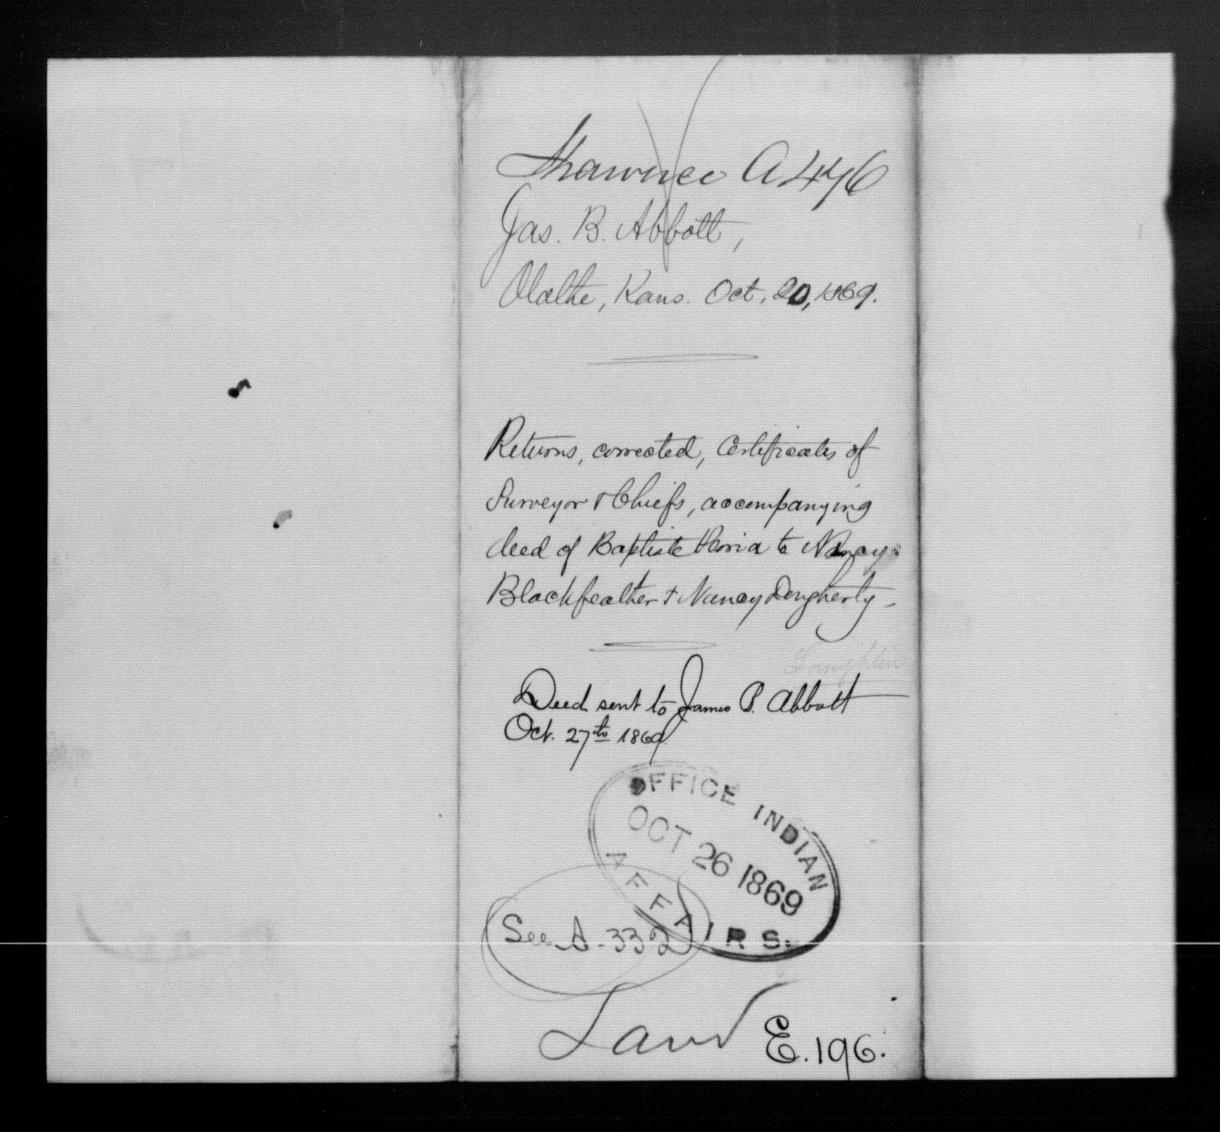 Shawnee A 476
Jas. B. Abbott,
Olathe, Kans. Oct. 20, 1869.
Returns, corrected, Certificates of
Surveyor & Chiefs, accompanying
deed of Baptiste Peoria to Nancy
Blackfeather & Nancy Dougherty -
Loughlin
Deed sent to James B. Abbott
Oct. 27th 1869
OFFICE INDIAN AFFAIRS.
OCT 26 1869
See A-332
Land E. 196.